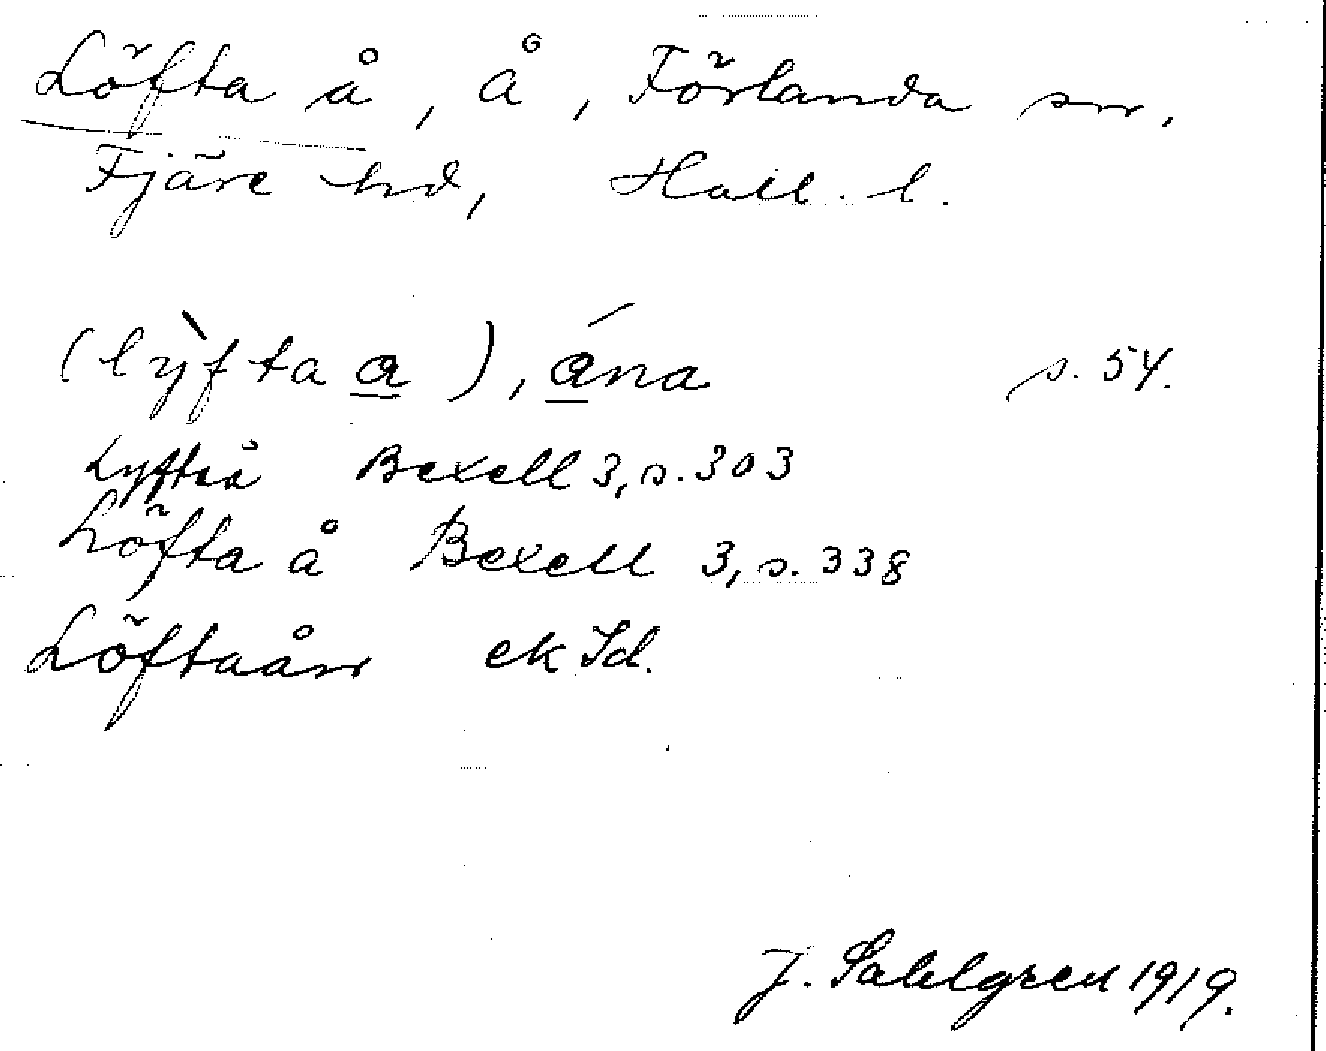 Löfta å, å, Förlanda sn.
Fjäre hd, Hall. l.
(lỳfta a), ána s. 54.
Lyftaå Bexell 3, s. 303
Löfta å Bexell 3, s. 338
Löftaån ek Id.
J. Sahlgren 1919.